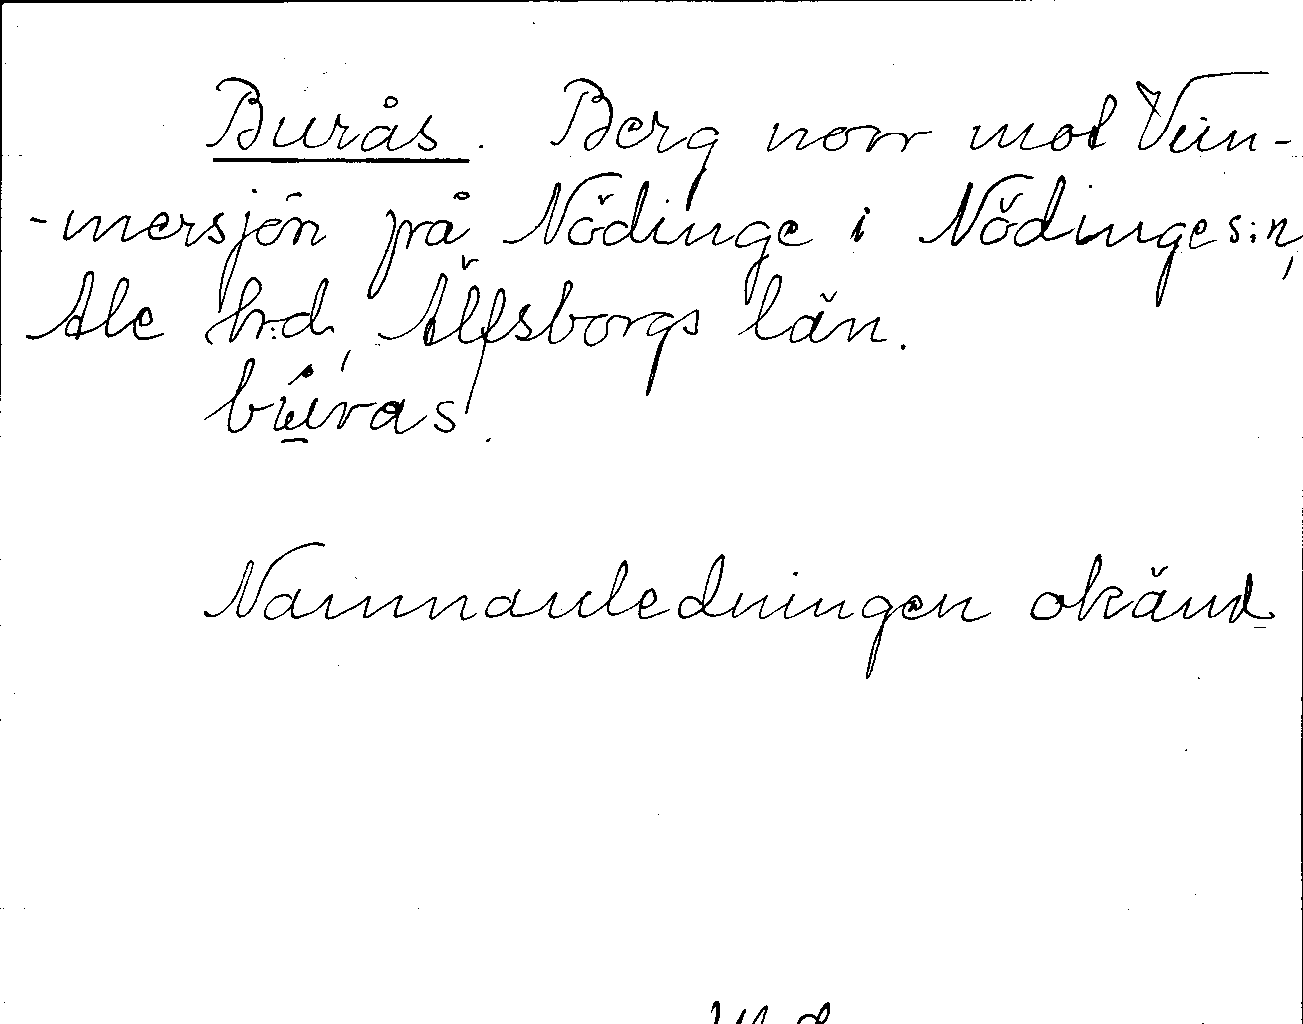 Burås. Berg norr mot Vim-
-mersjön på Nödinge i Nödinge s:n,
Ale hrd, Älfsborgs län.
bu̱ras.
Namnavledningen okänd